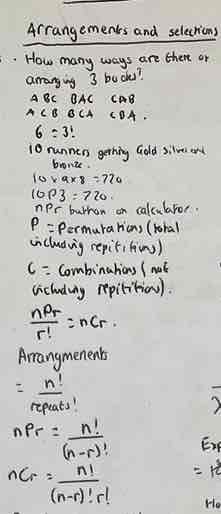 Arrangements and selections
. How many ways are there of
arranging 3 books?
ABC BAC CAB
ACB BCA CBA.
6 = 3!
10 runners getting Gold silver and
bronze.
10 x 9 x 8 = 720
10P3 = 720.
nPr button on calculator.
P = Permutations (total
including repititions)
C = Combinations (not
including repititions).
nPr
r!
= nCr.
Arrangmenents
= n!
repeats!
nPr = n!
(n-r)!
nCr = n!
(n-r)!r!
Exp
=